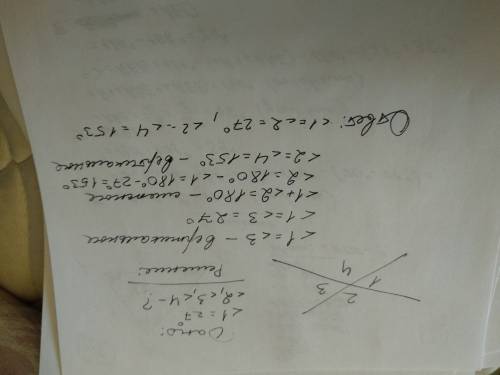 Дано:
<1 = 27°
<2, <3, <4 - ?
Решение:
1
2
3
4
<1 = <3 - вертикальное
<1 = <3 = 27°
<1 + <2 = 180° - смежное
<2 = 180° - <1 = 180° - 27° = 153°
<2 = <4 = 153° - вертикальное
Ответ: <1 = <2 = 27°, <2 - <4 = 153°